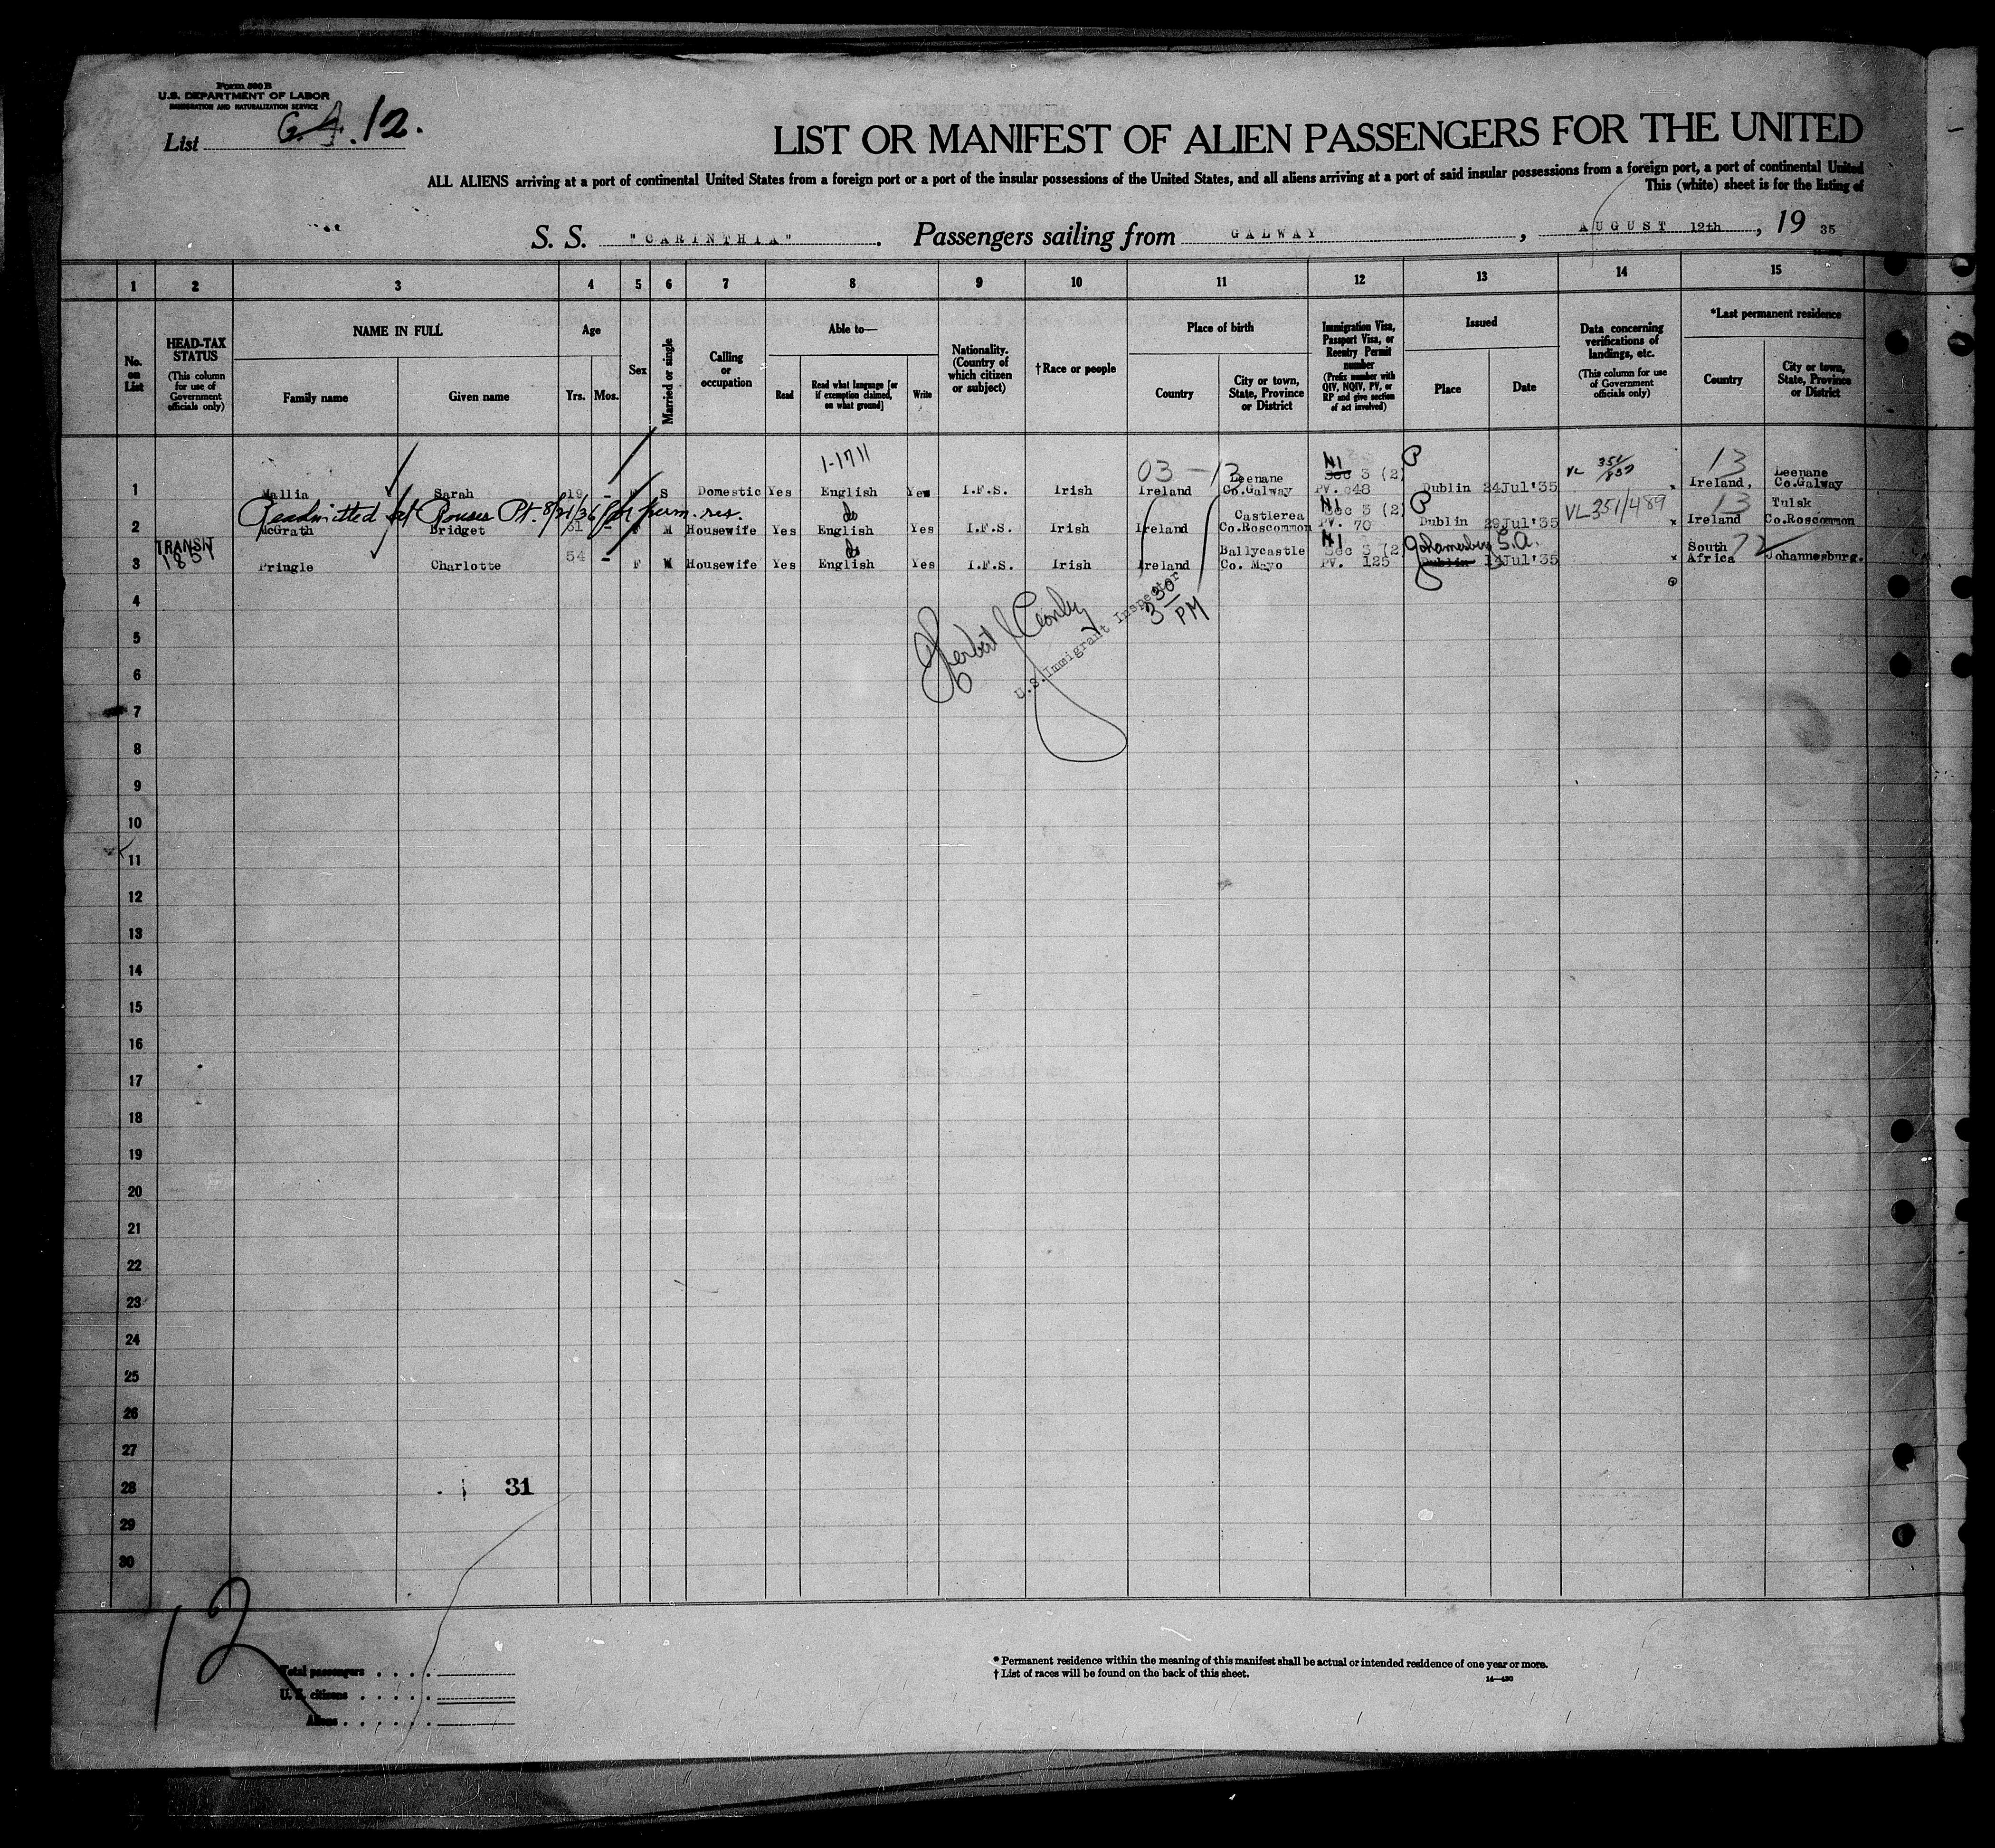 Form 500 B
U.S. DEPARTMENT OF LABOR
IMMIGRATION AND NATURALIZATION SERVICE
List 12.
LIST OR MANIFEST OF ALIEN PASSENGERS FOR THE UNITED
ALL ALIENS arriving at a port of continental United States from a foreign port or a port of the insular possessions of the United States, and all aliens arriving at a port of said insular possessions from a foreign port, a port of continental United
This (white) sheet is for the listing of
S. S. "CARINTHIA" . Passengers sailing from GALWAY , AUGUST 12th , 19 35
1 2 3 4 5 6 7 8 9 10 11 12 13 14 15
No. on List
HEAD-TAX STATUS
(This column for use of Government officials only)
NAME IN FULL
Family name
Given name
Age
Yrs. Mos.
Sex
Married or single
Calling or occupation
Able to—
Read
Read what language [or if exemption claimed, on what ground]
Write
Nationality. (Country of which citizen or subject)
†Race or people
Place of birth
Country
City or town, State, Province or District
Immigration Visa, Passport Visa, or Reentry Permit number
(Prefix number with QIV, NQIV, PV, or RP and give section of act involved)
Issued
Place
Date
Data concerning verifications of landings, etc.
(This column for use of Government officials only)
*Last permanent residence
Country
City or town, State, Province or District
1-1711
03 - 13
13
1 Mallia Sarah 19 - F S Domestic Yes English Yes I.F.S. Irish Ireland Leenane Co.Galway NI Sec 3 (2) PV. 648 P Dublin 24Jul'35 VL 351/837 Ireland, Leenane Co.Galway
Readmitted at Rouses Pt. 8/21/36 for perm. res.
2 McGrath Bridget 51 - F M Housewife Yes English Yes I.F.S. Irish Ireland Castlerea Co.Roscommon NI Sec 3 (2) PV. 70 P Dublin 29Jul'35 VL351/489 13 Ireland Tulsk Co.Roscommon
TRANSIT
1851
3 Pringle Charlotte 54 - F M Housewife Yes English Yes I.F.S. Irish Ireland Ballycastle Co. Mayo NI Sec 3 (2) PV. 125 Johannesburg S.A. Dublin 14Jul'35 South Africa 72 Johannesburg.
4
U.S. Immigrant Inspector
3 30 PM
5
6
7
8
9
10
11
12
13
14
15
16
17
18
19
20
21
22
23
24
25
26
27
28 31
29
30
12
Total passengers . . . .
U. S. citizens . . . . .
Aliens . . . . . .
* Permanent residence within the meaning of this manifest shall be actual or intended residence of one year or more.
† List of races will be found on the back of this sheet.
14—430